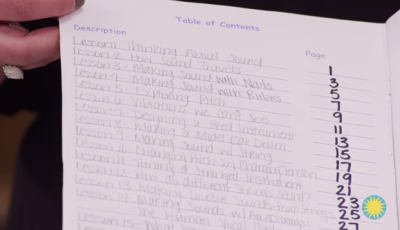 Table of Contents
Description Page
Lesson 1: Thinking About Sound 1
Lesson 2: How Sound Travels 3
Lesson 3: Making Sound with Nails 5
Lesson 4: Making Sound with Rulers 7
Lesson 5: Exploring Pitch 9
Lesson 6: Vibrations We Can't See 11
Lesson 7: Designing a Reed Instrument 13
Lesson 8: Making a Model Ear Drum 15
Lesson 9: Making Sound w/ String 17
Lesson 10: Changing Pitch by Changing Tension 19
Lesson 11: Stringed Instrument 21
Lesson 12: How do different Strings Sound? 23
Lesson 13: Making Sounds from Strings 25
Lesson 14: Making Sounds w/ 27
The Human Vocal
Lesson 15: What